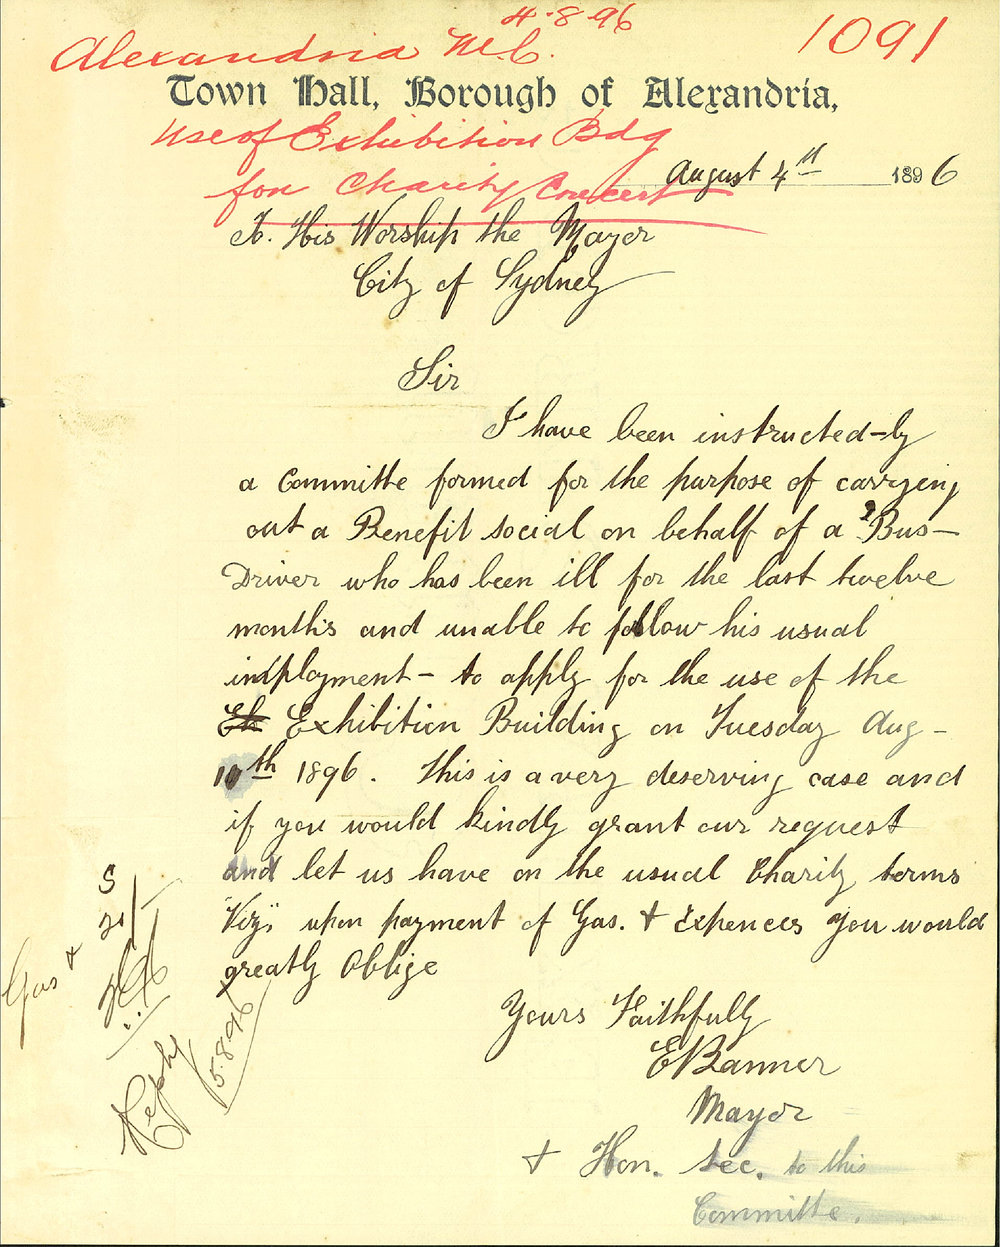 4.8.96
Alexandria M.C.
1091
Town Hall, Borough of Alexandria,
Use of Exhibition Bdg
for Charity Concert
August 4th 1896
To. His Worship the Mayor
City of Sydney
Sir
I have been instructed-by
a Committe formed for the purpose of carrying
out a Benefit social on behalf of a 'Bus-
Driver who has been ill for the last twelve
months and unable to follow his usual
imployment - to apply for the use of the
Ex Exhibition Building on Tuesday Aug-
10th 1896. This is a very deserving case and
if you would kindly grant our request
and let us have on the usual Charity terms
"Viz; upon payment of Gas. & Expences you would
greatly Oblige
Yours Faithfully
E Banner
Mayor
& Hon. Sec. to this
Committe.
Gas &
Reply
5.8.96